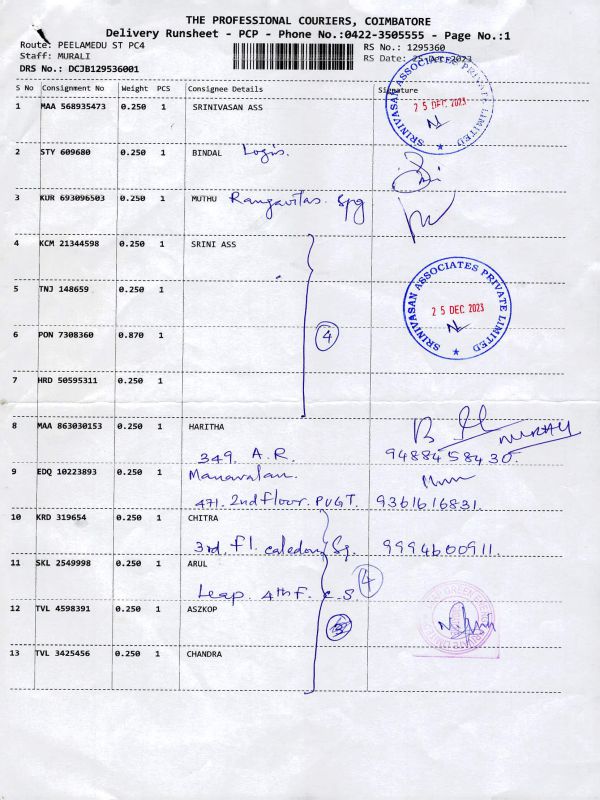 THE PROFESSIONAL COURIERS, COIMBATORE
Delivery Runsheet - PCP - Phone No.:0422-3505555 - Page No.:1
Route: PEELAMEDU ST PC4
RS No.: 1295360
Staff: MURALI
RS Date: 25-Dec-2023
DRS No.: DCJB129536001
S No Consignment No Weight PCS Consignee Details Signature
1 MAA 568935473 0.250 1 SRINIVASAN ASS
SRINIVASAN ASSOCIATES PRIVATE LIMITED
25 DEC 2023
2 STY 609680 0.250 1 BINDAL Logis.
3 KUR 693096503 0.250 1 MUTHU Rangavitas. Spg
4 KCM 21344598 0.250 1 SRINI ASS
5 TNJ 148659 0.250 1
SRINIVASAN ASSOCIATES PRIVATE LIMITED
25 DEC 2023
6 PON 7308360 0.870 1 4
7 HRD 50595311 0.250 1
8 MAA 863030153 0.250 1 HARITHA
349. A.R. 9488458430.
9 EDQ 10223893 0.250 1 Manavalan.
471. 2nd floor. PUGT. 9361616831.
10 KRD 319654 0.250 1 CHITRA
3rd. fl. caledon Sq. 9994600911.
11 SKL 2549998 0.250 1 ARUL
Leap. 4th F. C.S. 4
12 TVL 4598391 0.250 1 ASZKOP
3
13 TVL 3425456 0.250 1 CHANDRA